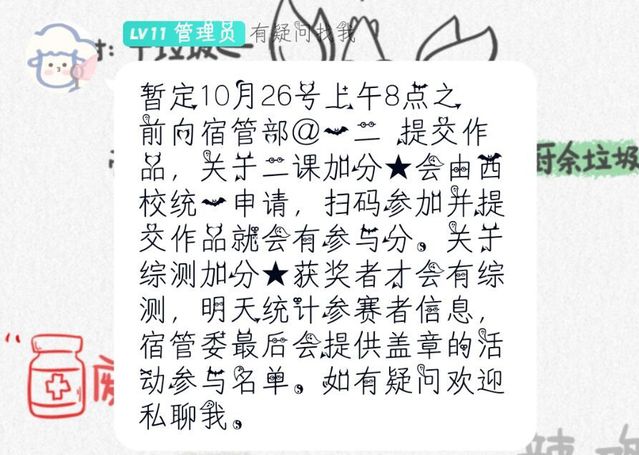 LV11 管理员 有疑问找我
暂定10月26号上午8点之
前向宿管部@一二 提交作
品，关于二课加分★会由西
校统一申请，扫码参加并提
交作品就会有参与分。关于
综测加分★获奖者才会有综
测，明天统计参赛者信息，
宿管委最后会提供盖章的活
动参与名单。如有疑问欢迎
私聊我。
厨余垃圾